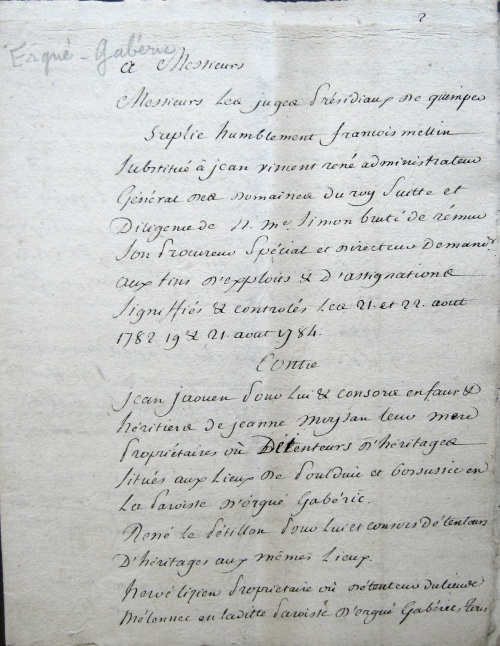 2
Ergué-Gabéric
A Messieurs
Messieurs Les juges Présidiaux De quimper
Suplie humblement françois mellin
Substitué à jean viment rené administrateur
Général Des Domaines du roy Suitte et
Diligence de N. Me. Simon bruté de rémur
Son Procureur Spécial et Directeur Demandr
aux fins D'exploits & D'assignations
signiffiés & controlés Les 21. et 22. aout
1782 19 & 21. aout 1784.
Contre
jean jaouen pour Lui & consors enfans &
héritiers de jeanne moysan leur mere
Propriétaires ou Détenteurs D'héritages
situés aux Lieux De et en
La Paroisse D'ergué Gabéric.
René le Pétillon pour Lui et consors Détenteurs
D'héritages aux mêmes Lieux.
hervé Lizien Propriétaire ou Détenteur du lieu de
Mélennec en laditte Paroisse D'ergué Gabéric,